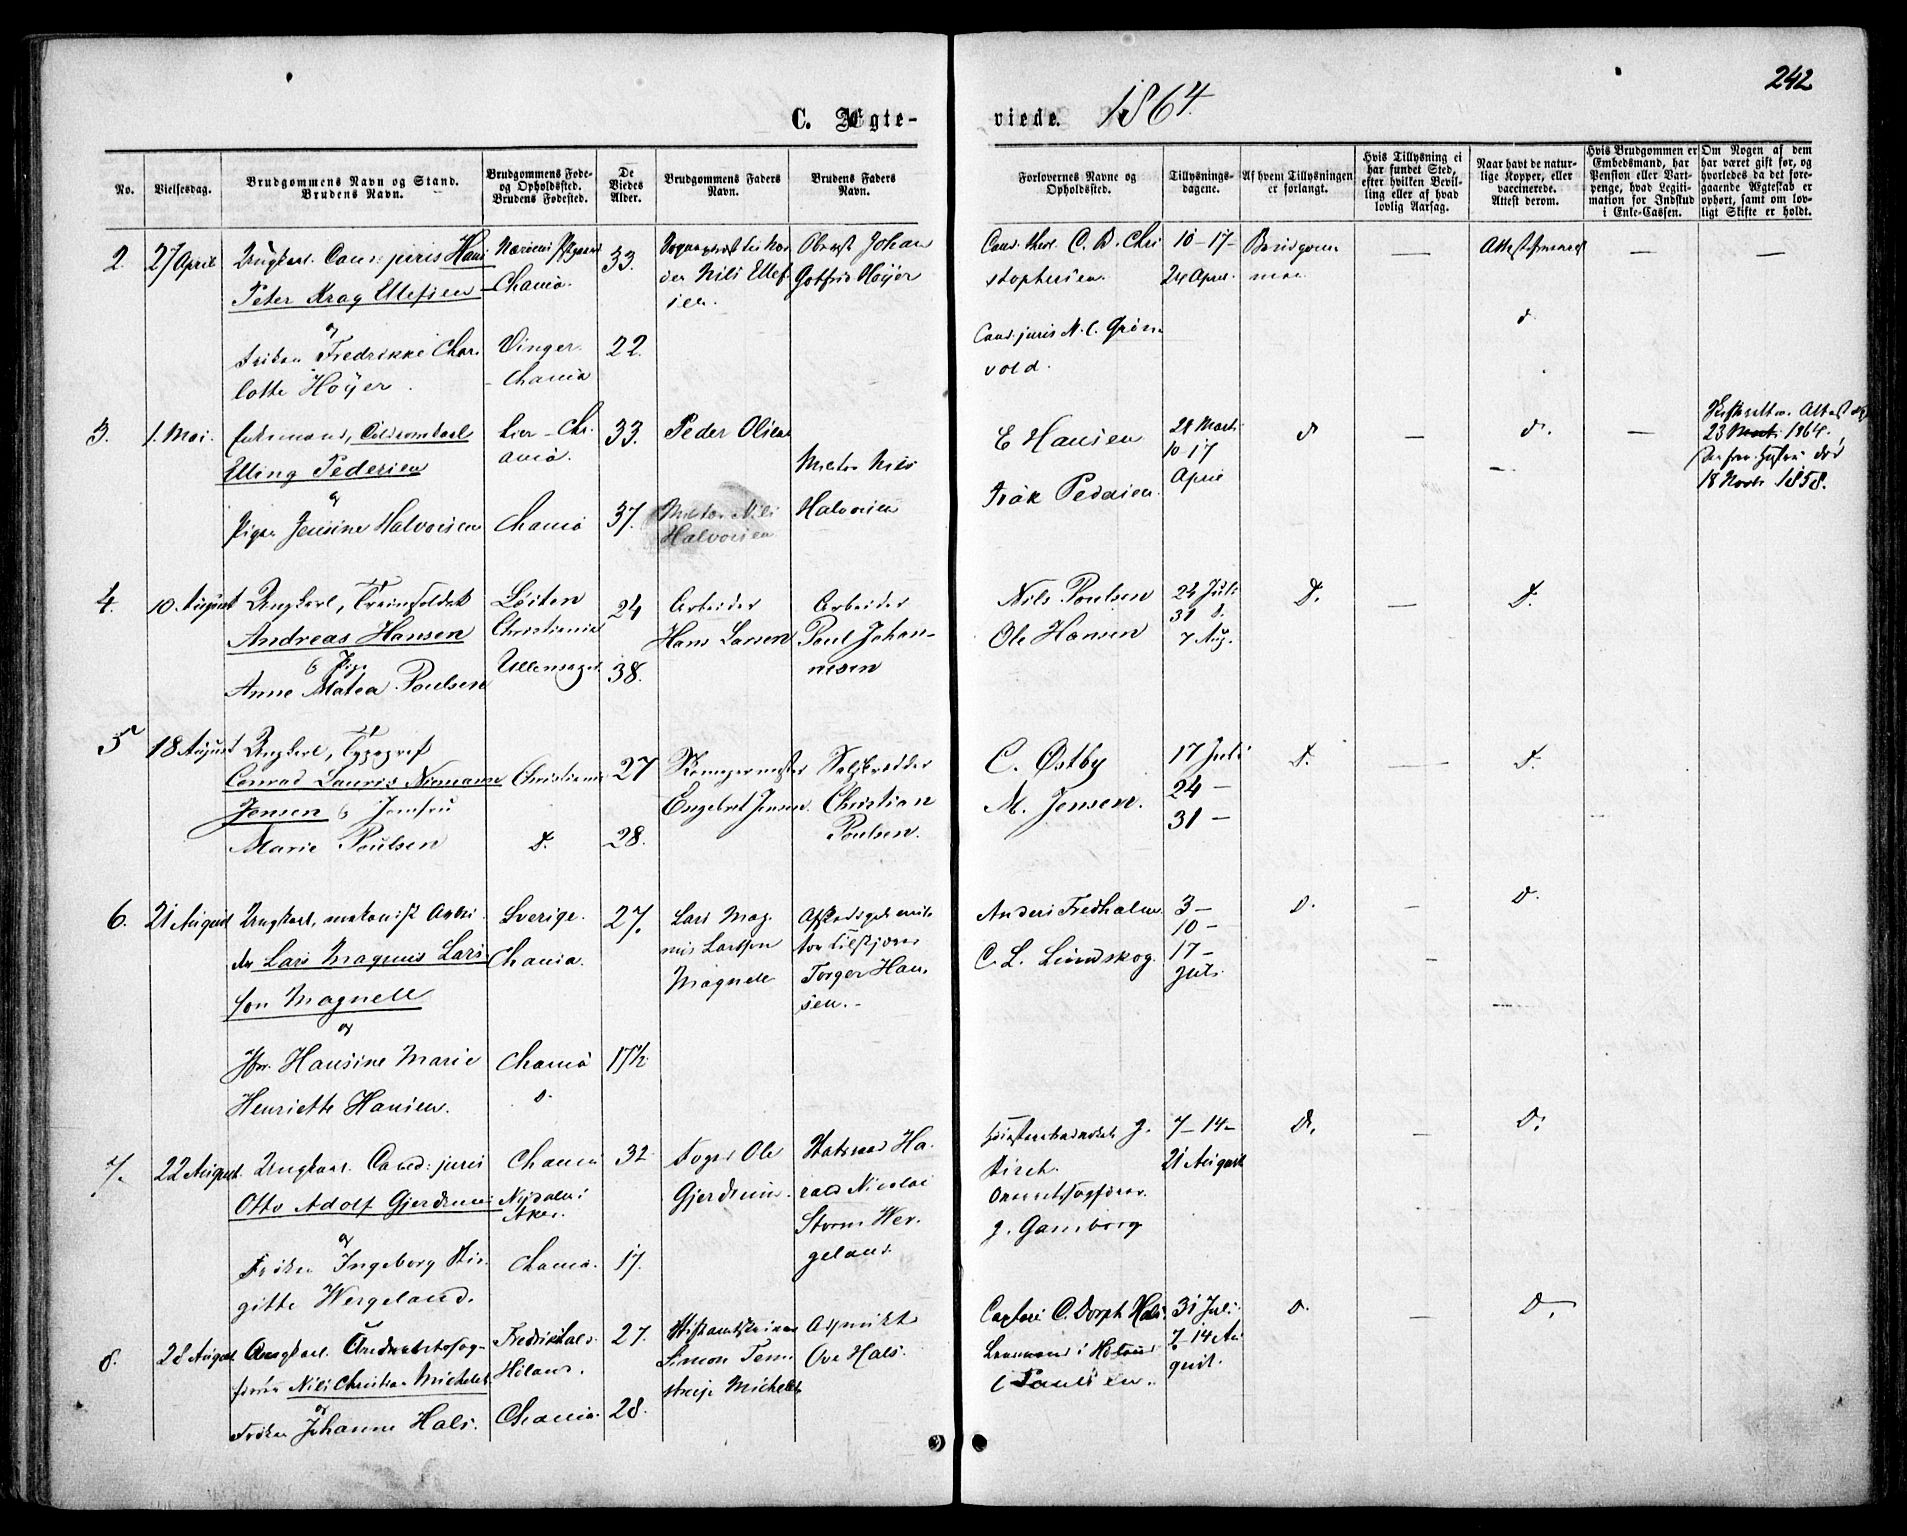 242
C. Ægte-
viede. 1864.
No.
Vielsesdag.
Brudgommens Navn og Stand.
Brudens Navn.
Brudgommens Føde-
og Opholdssted.
Brudens Fødested.
De
Viedes
Alder.
Brudgommens Faders
Navn.
Brudens Faders
Navn.
Forlovernes Navne og
Opholdssted.
Tillysnings-
dagene.
Af hvem Tillysningen
er forlangt.
Hvis Tillysning ei
har fundet Sted,
efter hvilken Bevil-
ling eller af hvad
lovlig Aarsag.
Naar havt de natur-
lige Kopper, eller
vaccinerede.
Attest derom.
Hvis Brudgommen er
Embedsmand, har
Pension eller Vart-
penge, hvad Legiti-
mation for Indskud
i Enke-Cassen.
Om Nogen af dem
har været gift før, og
hvorledes da det fore-
gaaende Ægteskab er
ophørt, samt om lov-
ligt Skifte er holdt.
2
27 April
Ungkarl. Cand: juris Hans
Peter Krag Ellefsen
og
Frøken Fredrikke Char-
lotte Høyer.
Chania.
Vinger
Chania
33.
22.
den Nils Ellef
sen.
Oberst Johan
Gotfrid Høyer
Cand. theol. C. B. Chri
stophersen
Cand. juris N. C. Grøn
vold.
10-17-
24 April
Brudgom
men
—
—
—
d
3.
1. Mai.
Enkemand,
Elling Pedersen
og
Pigen Jensine Halvorsen
Lier - Chri
ania.
Chania
33.
37.
Peder Olsen
Nils
Halvorsen
Nils
Halvorsen
E Hansen
Isak Pedersen.
10 17
April
d
—
d.
—
Attest af
23 1864.
18 1858.
4.
10 August
Ungkarl, Trainsoldat
Andreas Hansen
& Pige
Anne Matea Poulsen
Løiten
Christiania
Ullensager
24
38.
Arbeider
Hans Larsen
Arbeider
Poul Johan-
nesen
Nils Poulsen
Ole Hansen
24 Juli
31 d.
7 Aug.
D.
—
D.
5
18 August
Ungkarl, Typograf
Conrad Lauris Niemann
Jensen & Jomfru
Marie Poulsen
Christiania
D.
27
28.
Engebret Jensen.
Christian
Poulsen.
C. Østby
M. Jensen.
17 Juli
24 —
31 —
D.
—
D.
6.
21 August
Ungkarl, Arbei
der Lars Magnus Lars
son Magnell
og
Jfr. Hansine Marie
Henriette Hansen.
Sverige.
Chania.
Chania
d.
27.
17½
Lars Mag
nus Larsson
Magnell
Torger Han
sen.
Anders Fredholm
C. L. Lindskog.
3 —
10 —
17 —
Juli
D.
—
D.
7.
22 August.
Ungkarl. Cand: juris
Otto Adolf Gjerdrum
og
Frøken Ingeborg Bir-
gitte Wergeland.
Chania
Nydalen i
Aker.
Chania.
32
17.
Foged Ole
Gjerdrum.
Statsraad Ha-
rald Nicolai
Storm Wer-
geland.
J.
Birch.
J. Gamborg
7-14-
21 August
D.
—
D.
8.
28 August
Ungkarl.
Nils Christian Michelet
og
Frøken Johanne Hals.
Fredrikshald
Høland.
Chania.
27.
28.
Simon Tem
streje Michelet
Ove Hals.
C. Dorph Hals.
Lensmand i Høland
Paulsen.
31 Juli
7-14 Au
gust.
D.
—
D.